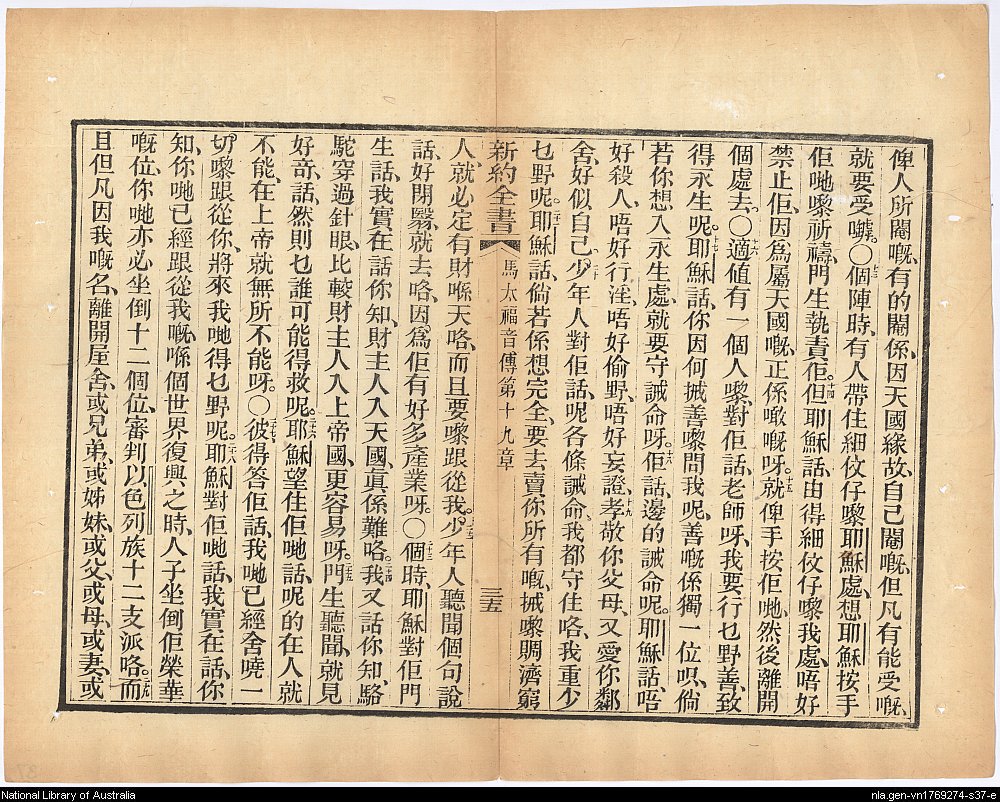 俾人所閹嘅、有的關係、因天國緣故、自己閹嘅、但凡有能受嘅、
就要受嚹。〇十三個陣時、有人帶住細伩仔嚟耶穌處、想耶穌按手
佢哋嚟祈禱、門生執責佢。十四但耶穌話、由得細伩仔嚟我處、唔好
禁止佢、因爲屬天國嘅、正係噉嘅呀。十五就俾手按佢哋、然後離開
個處去。〇十六適值有一個人嚟、對佢話、老師呀、我要行乜野善、致
得永生呢。十七耶穌話、你因何械善嚟問我呢、善嘅係獨一位唄、倘
若你想入永生處、就要守誡命呀。十八佢話、邊的誡命呢。耶穌話、唔
好殺人、唔好行淫、唔好偷野、唔好妄證、十九孝敬你父母、又愛你鄰
舍、好似自己。二十少年人對佢話、呢各條誡命、我都守住咯、我重少
乜野呢。二十一耶穌話、倘若係想完全、要去賣你所有嘅、械嚟賙濟窮
新約全書 馬太福音傳第十九章 三五
人、就必定有財喺天咯、而且要嚟跟從我。二十二少年人聽聞個句說
話、好閉翳、就去咯、因爲佢有好多產業呀。〇二十三個時、耶穌對佢門
生話、我實在話你知、財主人入天國、眞係難咯。二十四我又話你知、駱
駝穿過針眼、比較財主人入上帝國、更容易呀。二十五門生聽聞、就見
好奇、話、然則乜誰可能得救呢。二十六耶穌望住佢哋話、呢的在人就
不能、在上帝就無所不能呀。〇二十七彼得答佢話、我哋已經舍嘵一
切、嚟跟從你、將來我哋得乜野呢。二十八耶穌對佢哋話、我實在話、你
知、你哋已經跟從我嘅、喺個世界復興之時、人子坐倒佢榮華
嘅位、你哋亦必坐倒十二個位、審判以色列族十二支派咯。二十九而
且但凡因我嘅名、離開屋舍、或兄弟、或姊妹、或父、或母、或妻、或
National Library of Australia
nla.gen-vn1769274-s37-e